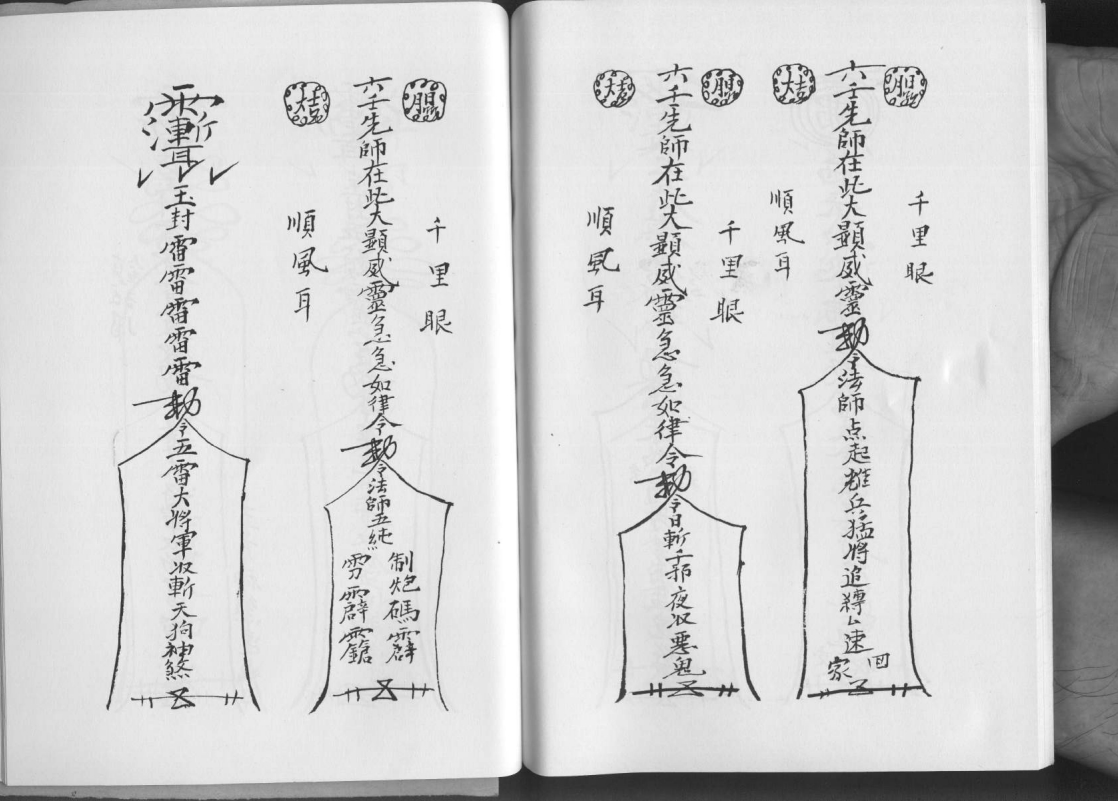 六壬先師在此大顯威靈
勅令法師点起雄兵猛將追縛厶速
回
家
千里眼
順風耳
大吉
六壬先師在此大顯威靈急急如律令
勅令日斬千邪夜收惡鬼
千里眼
順風耳
大吉
六壬先師在此大顯威靈急急如律令
勅令法師五
制炮碼霹
雳霹
千里眼
順風耳
大吉
玉封雷雷雷雷雷
勅令五雷大將軍收斬天狗神煞